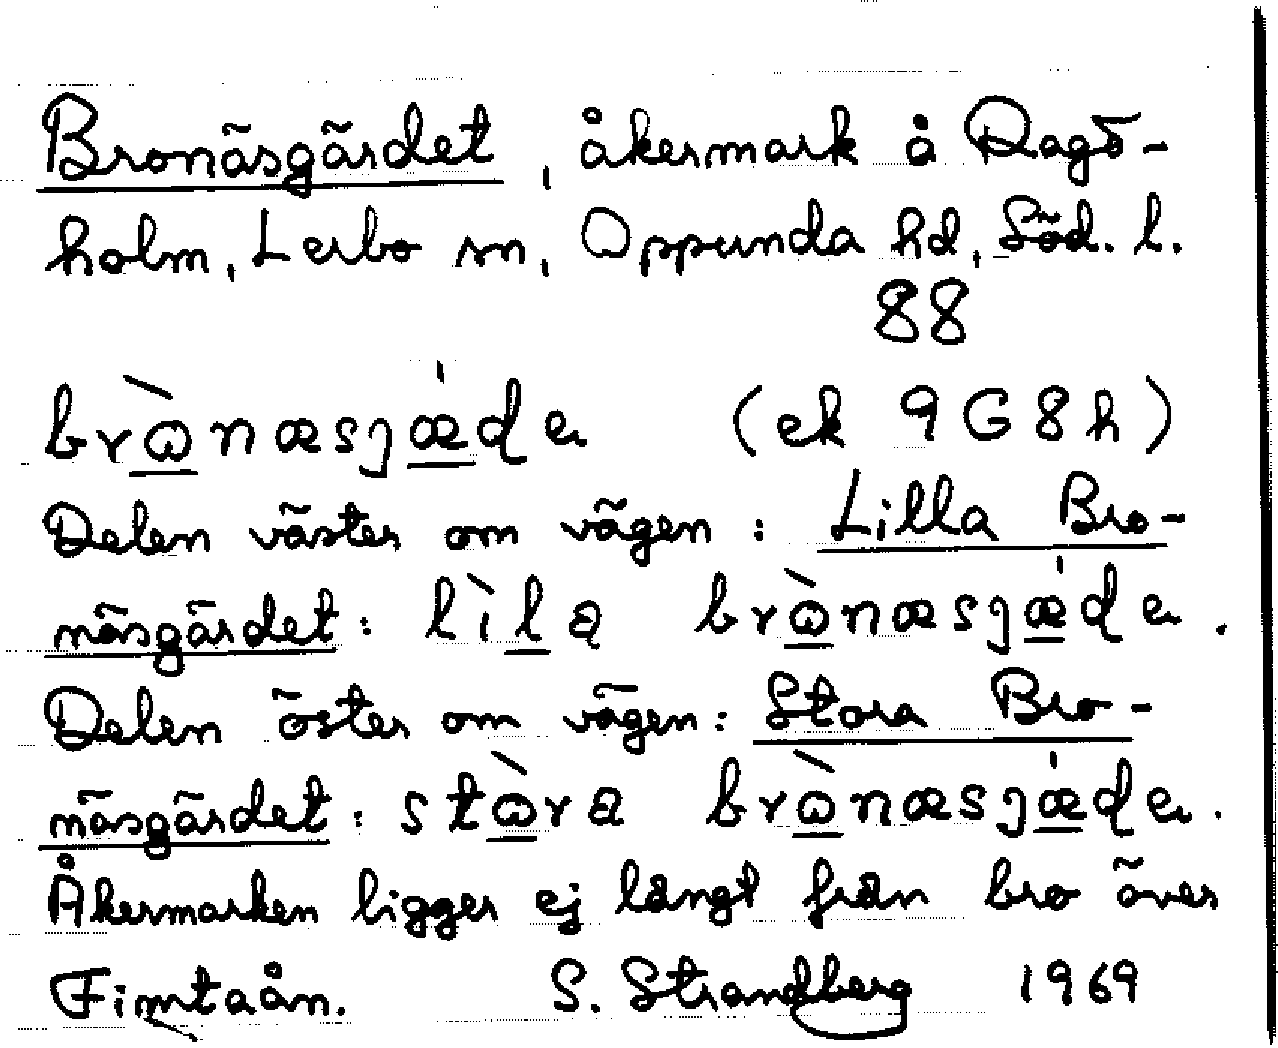 Bronäsgärdet, åkermark å Ragö-
holm, Lerbo sn, Oppunda hd, Söd. l.
88
brὼnæsjǽde (ek 9G8h)
Delen väster om vägen: Lilla Bro-
näsgärdet: lìla brὼnæsjǽde.
Delen öster om vägen: Stora Bro-
näsgärdet: stὼra brὼnæsjǽde.
Åkermarken ligger ej långt från bro över
Fimtaån. S. Strandberg 1969